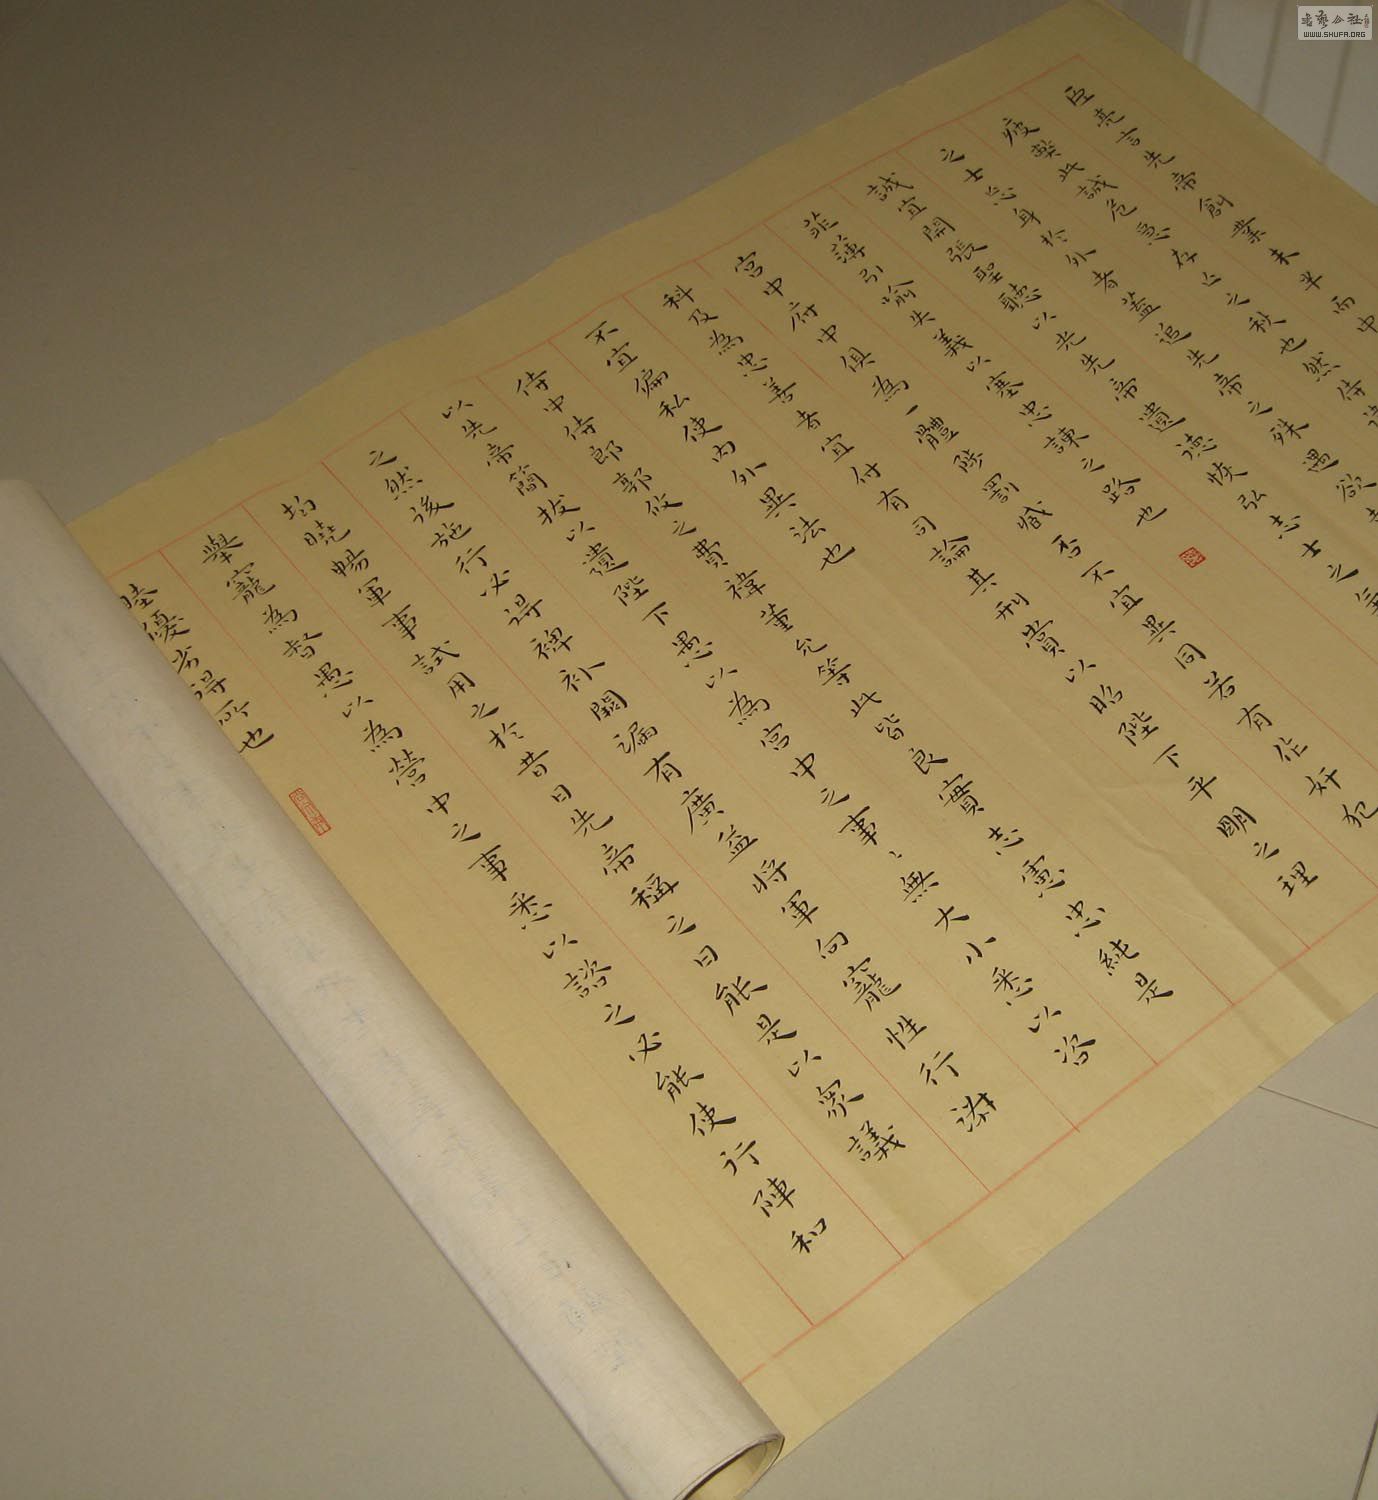 臣亮言先帝創業未半而中
疲弊此誠危急存亡之秋也然侍
之士忘身於外者蓋追先帝之殊遇欲
誠宜開張聖聽以光先帝遺德恢弘志士之氣
菲薄引喻失義以塞忠諫之路也
宮中府中俱為一體陟罰臧否不宜異同若有作奸犯
科及為忠善者宜付有司論其刑賞以昭陛下平明之理
不宜偏私使內外異法也
侍中侍郎郭攸之費褘董允等此皆良實志慮忠純是
以先帝簡拔以遺陛下愚以為宮中之事〻無大小悉以咨
之然後施行必得裨補闕漏有廣益將軍向寵性行淑
均曉暢軍事試用之於昔日先帝稱之曰能是以眾議
舉寵為督愚以為營中之事悉以諮之必能使行陣和
睦優劣得所也
書藝公社
WWW.SHUFA.ORG